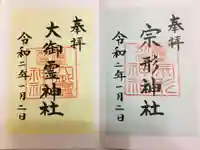 奉拝
宗形神社
令和二年一月二日
奉拝
大御霊神社
令和二年一月二日